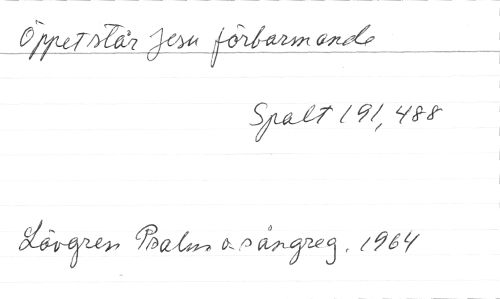 Öppet står Jesu förbarmande
Spalt 191, 488
Lövgren Psalm o. sångreg. 1964